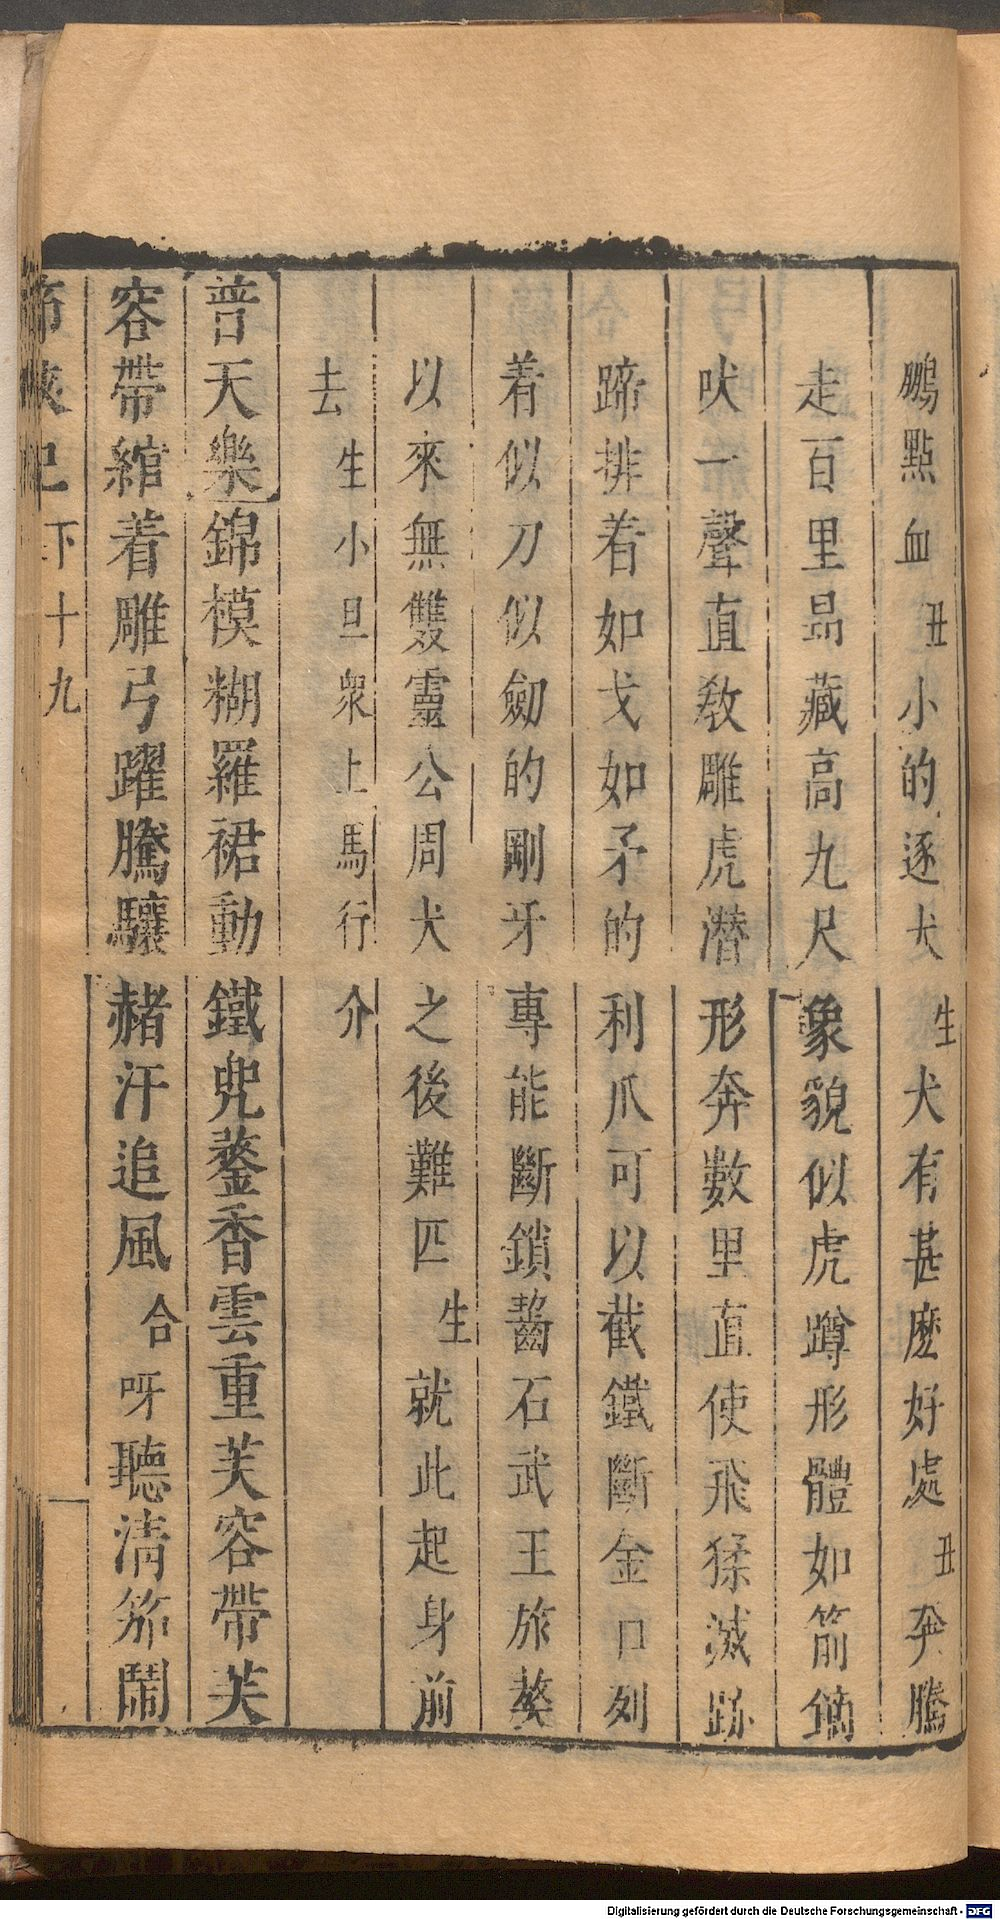 鵬點血丑小的逐犬生犬有甚麽好處丑奔騰
走百里昻藏高九尺象貌似虎蹲形體如箭鏑
吠一聲直教雕虎潜形奔數里直使飛猱滅跡
蹄排着如戈如矛的利爪可以截鐵斷金口列
着似刀似劒的剛牙專能斷鎖齧石武王旅獒
以來無雙靈公周犬之後難匹生就此起身前
去生小旦衆上馬行介
普天樂錦模糊羅裙動鐵兜鍪香雲重芙容帶芙
容帶綰着雕弓躍騰驤赭汗追風合呀聽清笳鬧
下十九
Digitalisierung gefördert durch die Deutsche Forschungsgemeinschaft - DFG